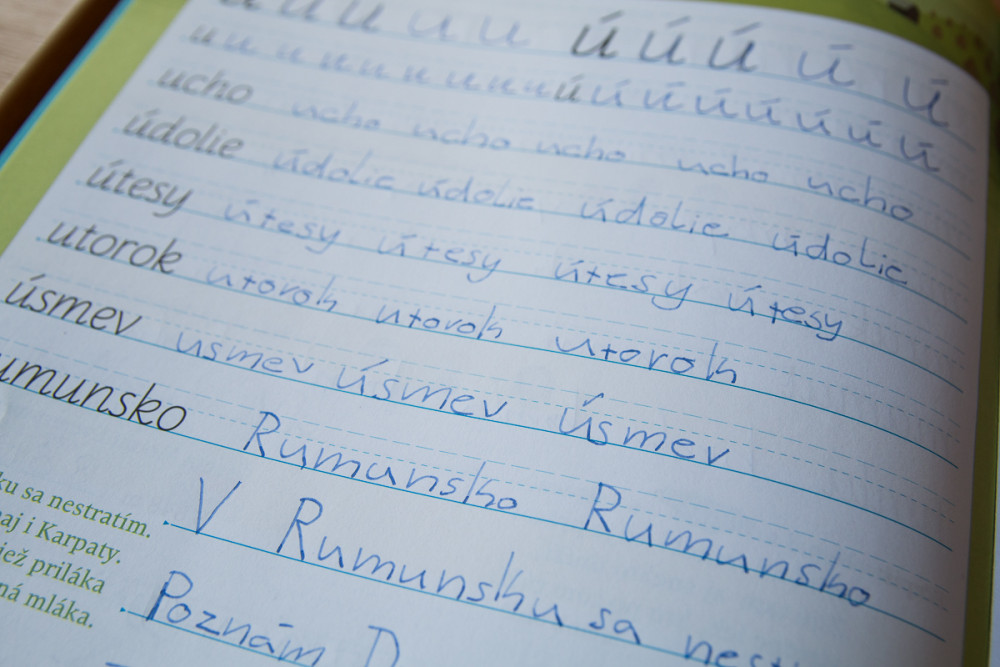 u u u u u Ú Ú Ú Ú Ú
u u u u u u u u u ú ú ú ú ú ú ú ú
ucho ucho ucho ucho ucho ucho
údolie údolie údolie údolie údolie
útesy útesy útesy útesy útesy
utorok utorok utorok utorok
úsmev usmev úsmev úsmev
umunsko Rumunsko Rumunsko
ku sa nestratím. V Rumunsku sa nest
aj i Karpaty.
iež priláka Poznám D
ná mláka.